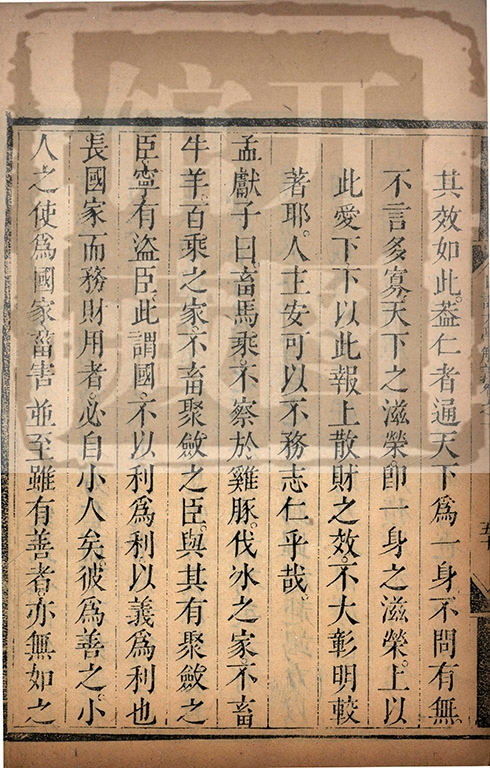 其效如此。蓋仁者通天下爲一身。不問有無
不言多寡。天下之滋榮。即一身之滋榮。上以
此愛下。下以此報上。散財之效。不大彰明較
著耶。人主安可以不務志仁乎哉。
孟獻子曰。畜馬乘。不察於雞豚。伐冰之家。不畜
牛羊。百乘之家。不畜聚斂之臣。與其有聚斂之
臣。寧有盜臣。此謂國。不以利爲利。以義爲利也
長國家而務財用者。必自小人矣。彼爲善之。小
人之使爲國家。菑害並至。雖有善者。亦無如之